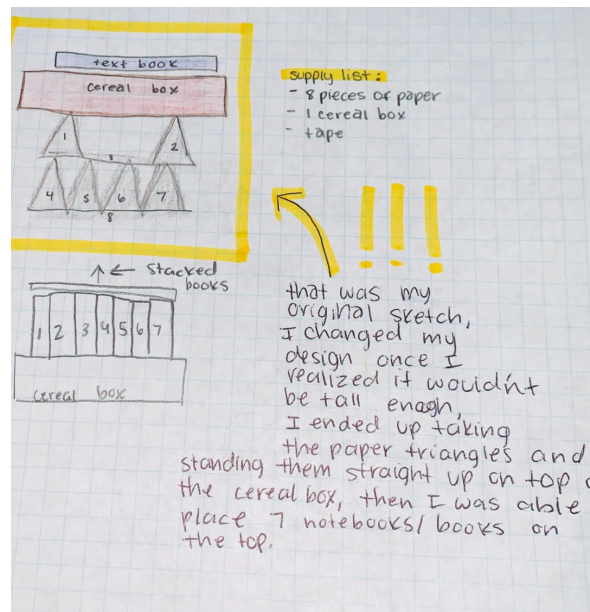 text book
cereal box
1 2
3
4 5 6 7
8
supply list:
- 8 pieces of paper
- 1 cereal box
- tape
↑ ← stacked
books
1 2 3 4 5 6 7
cereal box
!!!
that was my
original sketch,
I changed my
design once I
realized it wouldn't
be tall enogh,
I ended up taking
the paper triangles and
standing them straight up on top
the cereal box, then I was able
place 7 notebooks/books on
the top.